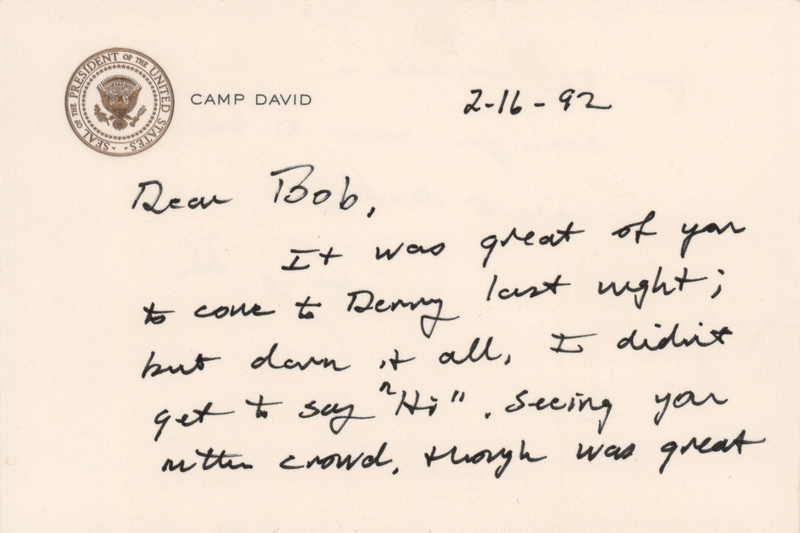 SEAL OF THE PRESIDENT OF THE UNITED STATES
CAMP DAVID
2-16-92
Dear Bob,
It was great of you
to come to Derry last night;
but darn it all, I didn't
get to say "Hi". Seeing you
in the crowd, though was great